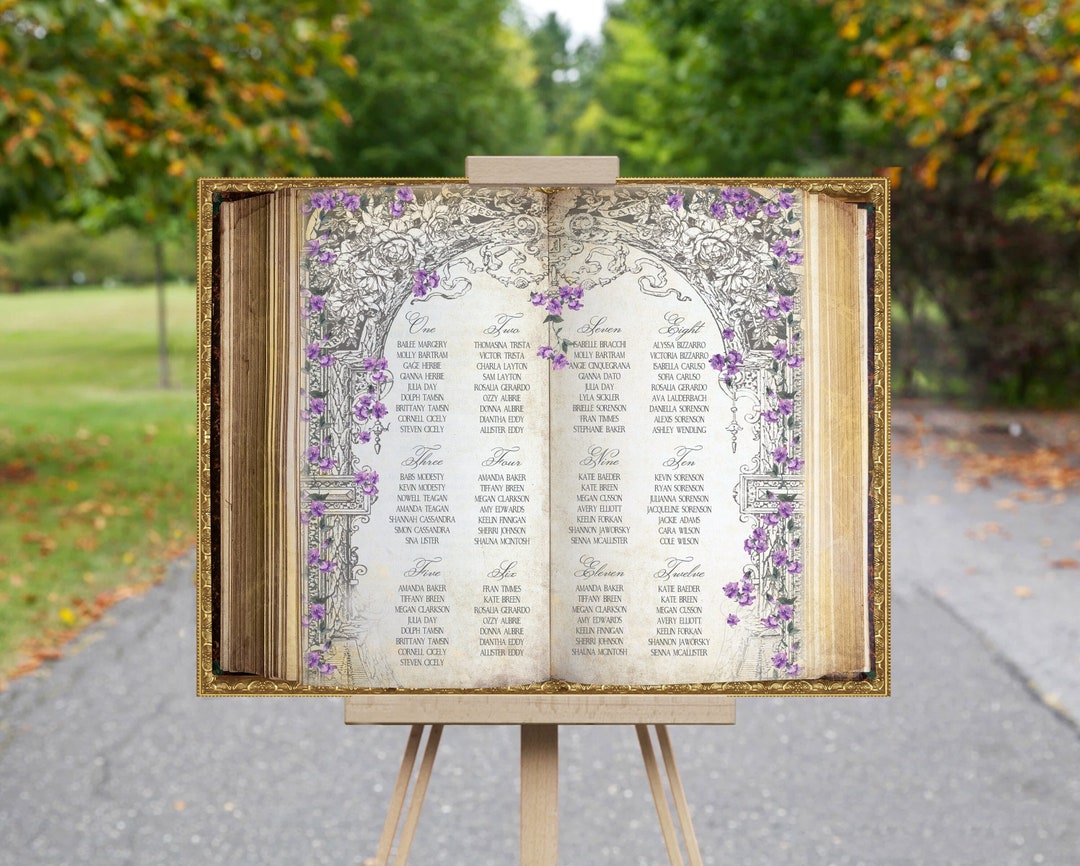 One
BAILEE MARGERY
MOLLY BARTRAM
GAGE HERBIE
GIANNA HERBIE
JULIA DAY
DOLPH TAMSIN
BRITTANY TAMSIN
CORNELL CICELY
STEVEN CICELY
Two
THOMASINA TRISTA
VICTOR TRISTA
CHARLA LAYTON
SAM LAYTON
ROSALIA GERARDO
OZZY ALBRE
DONNA ALBRE
DIANTHA EDDY
ALLISTER EDDY
Three
BABS MODESTY
KEVIN MODESTY
NOWELL TEAGAN
AMANDA TEAGAN
SHANNAH CASSANDRA
SIMON CASSANDRA
SINA LISTER
Four
AMANDA BAKER
TIFFANY BREEN
MEGAN CLARKSON
AMY EDWARDS
KEELIN FINNIGAN
SHERRI JOHNSON
SHAUNA MCINTOSH
Five
AMANDA BAKER
TIFFANY BREEN
MEGAN CLARKSON
JULIA DAY
DOLPH TAMSIN
BRITTANY TAMSIN
CORNELL CICELY
STEVEN CICELY
Six
FRAN TIMMES
KATE BREEN
ROSALIA GERARDO
OZZY ALBRE
DONNA ALBRE
DIANTHA EDDY
ALLISTER EDDY
Seven
BRACCHI
MOLLY BARTRAM
CINQUEGRANA
GIANNA DATO
JULIA DAY
LYLA SICKLER
BRIELLE SORENSON
FRAN TIMMES
STEPHANIE BAKER
Eight
ALYSSA BIZZARRO
VICTORIA BIZZARRO
ISABELLA CARUSO
SOFIA CARUSO
ROSALIA GERARDO
AVA LAUDERBACH
DANIELLA SORENSON
ALEXIS SORENSON
ASHLEY WENDLING
Nine
KATIE BAEDER
KATE BREEN
MEGAN CUSSON
AVERY ELLIOTT
KEELIN FORKAN
SHANNON JAWORSKY
SENNA MCALLISTER
Ten
KEVIN SORENSON
RYAN SORENSON
JULIANNA SORENSON
JACQUELINE SORENSON
JACKIE ADAMS
CARA WILSON
COLE WILSON
Eleven
AMANDA BAKER
TIFFANY BREEN
MEGAN CLARKSON
AMY EDWARDS
KEELIN FINNIGAN
SHERRI JOHNSON
SHAUNA MCINTOSH
Twelve
KATIE BAEDER
KATE BREEN
MEGAN CUSSON
AVERY ELLIOTT
KEELIN FORKAN
SHANNON JAWORSKY
SENNA MCALLISTER